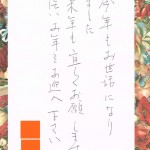 今年もお世話になり
ました
来年も宜しくお願いします
お年をお迎え下さい